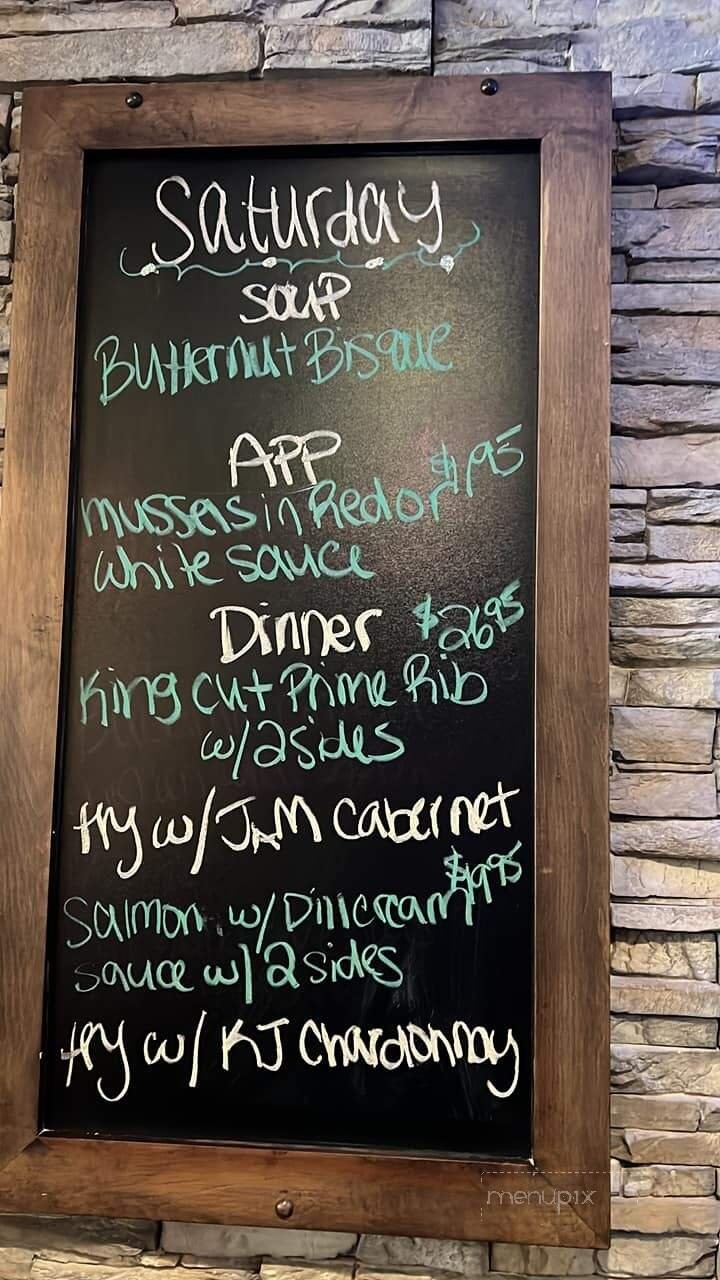 Saturday
SOUP
Butternut Bisque
APP
Mussels in Red or
white sauce
Dinner $26.95
King Cut Prime Rib
w/2 sides
try w/ JAM Cabernet
$19.95
Salmon w/ Dill cream
sauce w/ 2 sides
try w/ KJ Chardonnay
menupix